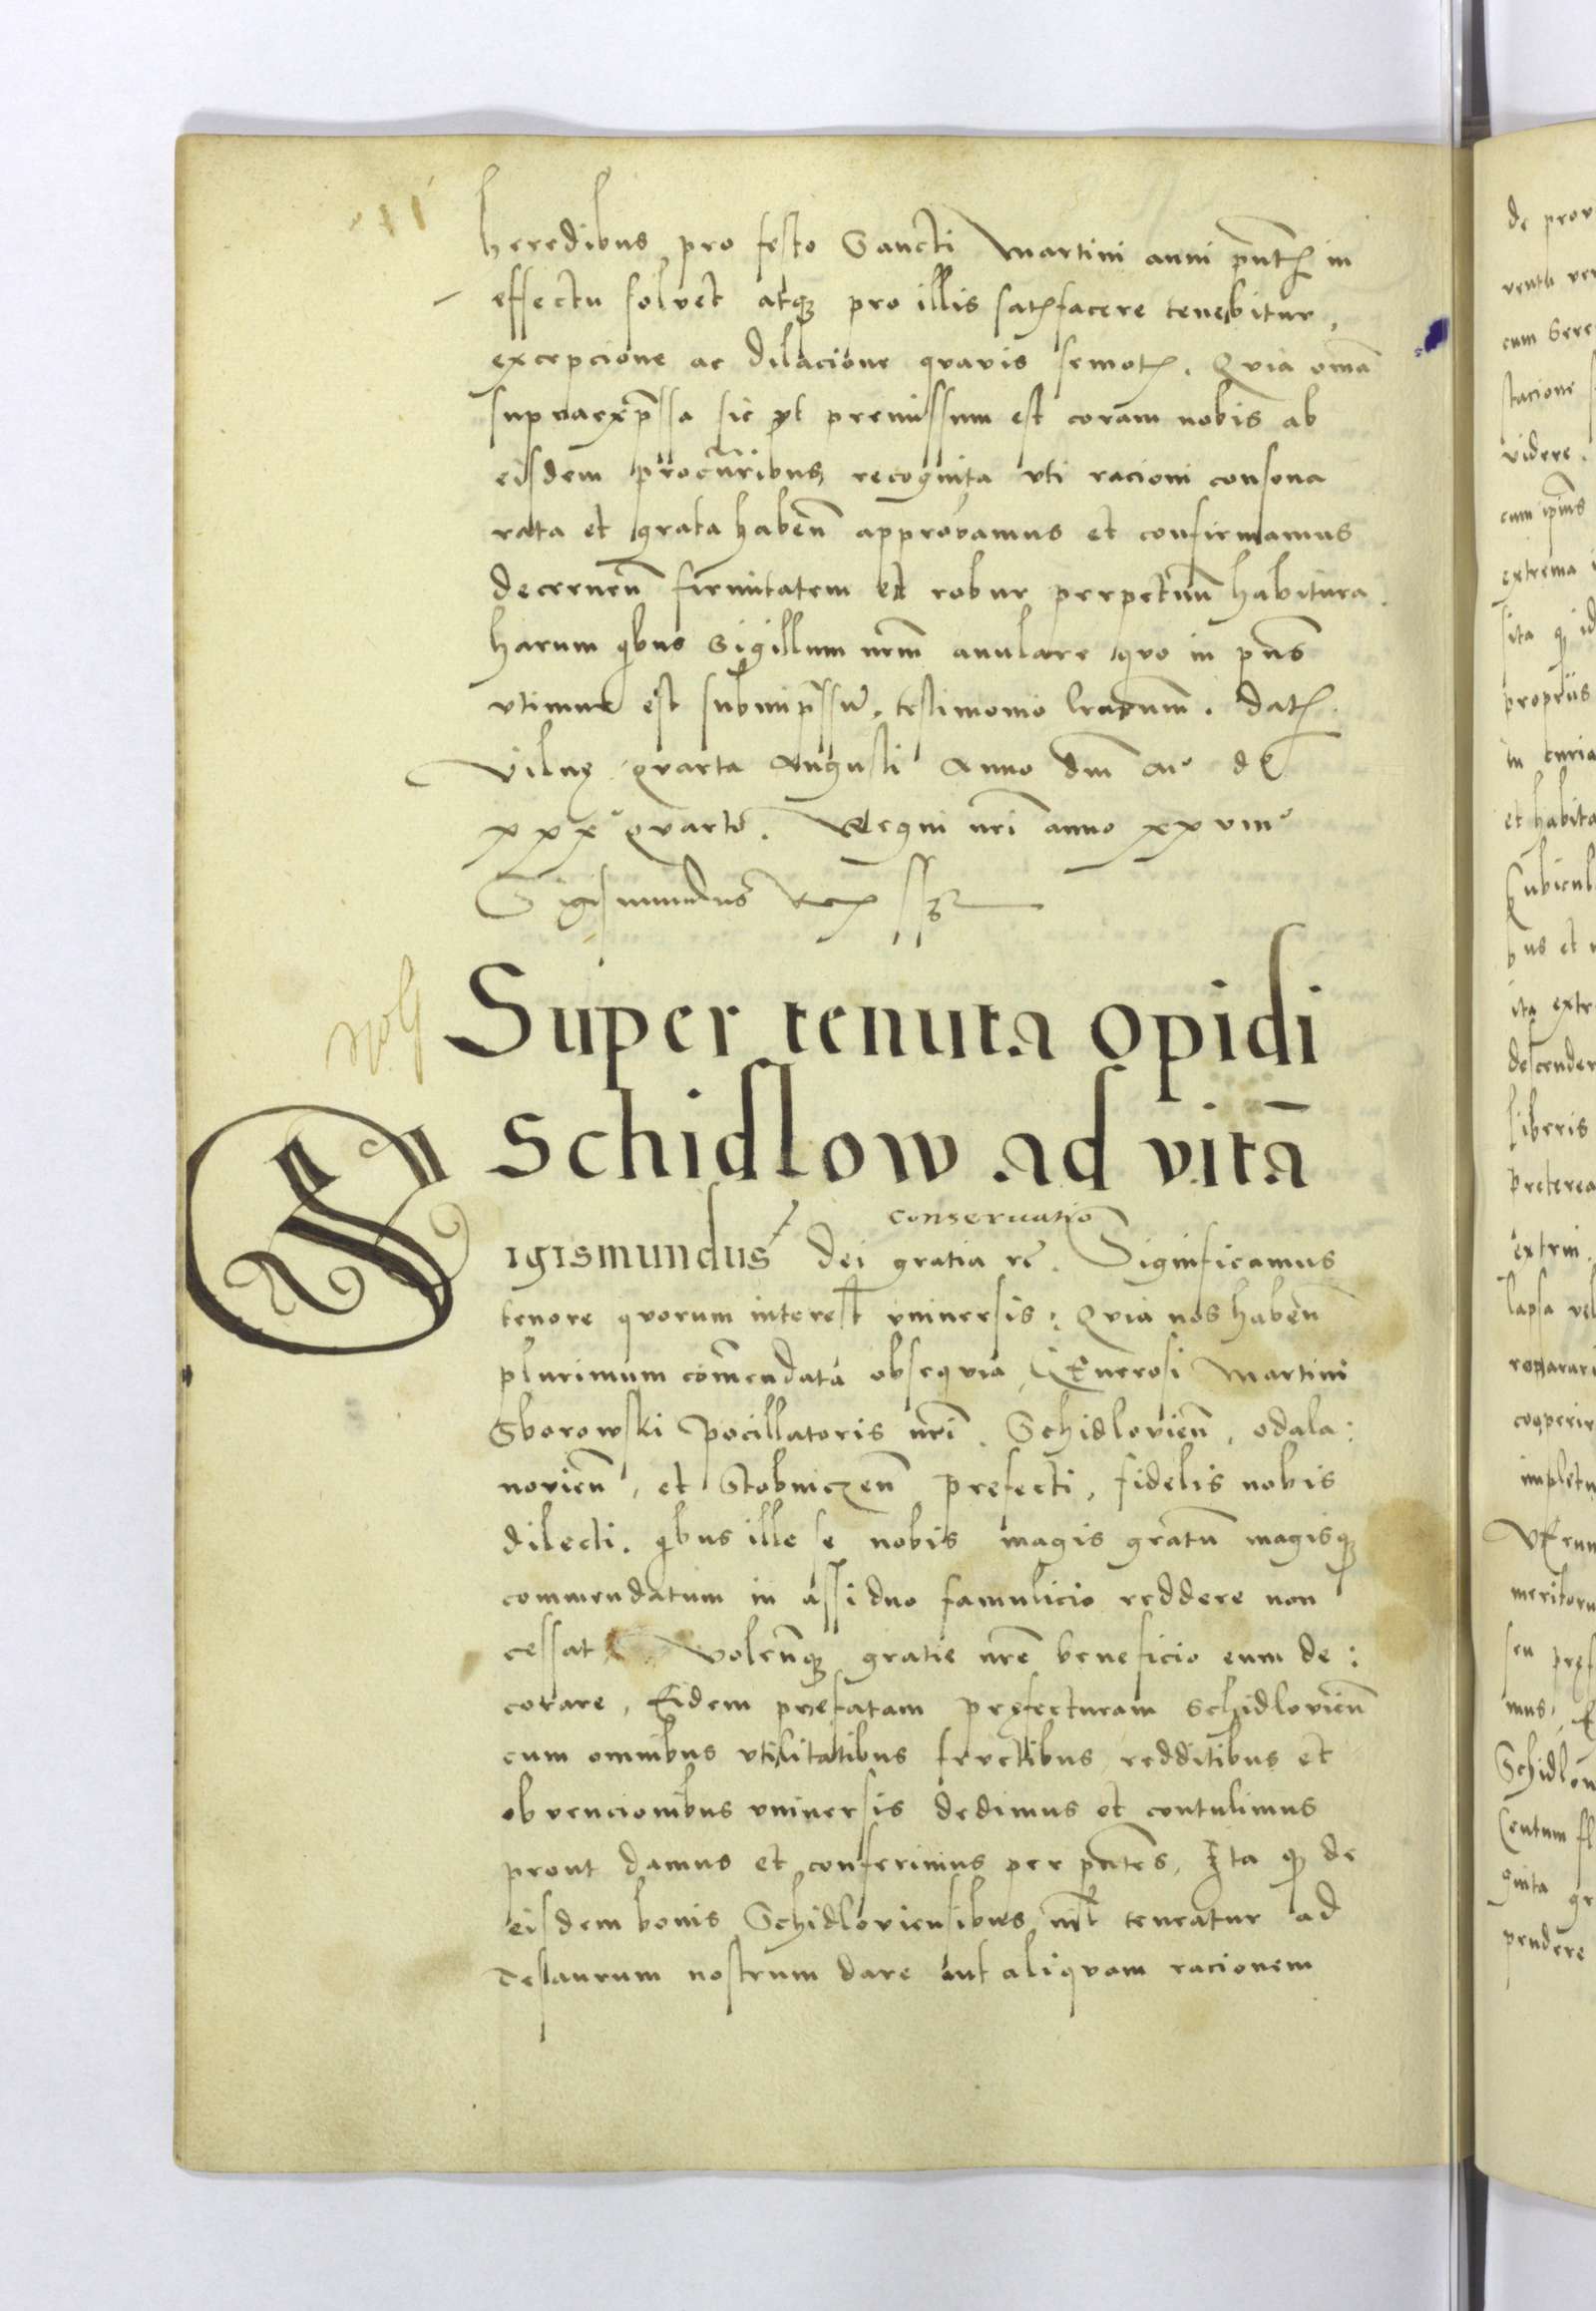 heredibus pro festo Sancti Martini anni pn̄tꝭ in
effectu solvet atqꝫ pro illis satꝭfacere tenebitur,
excepcione ac dilacione qvavis semotꝭ. Qvia om̄ia
supraexp̄ssa sic ut premissum est coram nobis ab
eisdem procūribus recognita uti racioni consona
rata et grata haben̄ approbamus et confirmamus
decernen̄ firmitatem et robur perpetuū habitura.
Harum qibus Sigillum nr̄m anulare qvo in pn̄s
utimur est subimp̄ssū. testimonio lr̄arum. Datꝭ
Vilnę qvarta Augusti Anno dn̄i Mo. dc̄
xxxo qvarto. Regni nr̄i anno xxviiio
Sigismundus Rex ssꝫ
Noḡ
Super tenuta opidi
Schidlow ad vitā
conservatio
Sigismundus Dei gratia rc̄. Significamus
tenore qvorum interest universis: Qvia nos haben̄
plurimum com̄endata obseqvia, GEnerosi Martini
Sborowski pocillatoris nr̄i. Schidlovien̄, odala:
novien̄, et Stobniczen̄ prefecti, fidelis nobis
dilecti. qibus ille se nobis magis gratū magisqꝫ
commendatum in assiduo famulicio reddere non
cessat Volen̄qꝫ gratie nr̄e beneficio eum de:
corare, Eidem prefatam pręfecturam Schidlovien̄
cum omnibus utilitatibus fructibus redditibus et
obvencionibus universis dedimus et contulimus
prout damus et conferimus per pn̄tes, Ita qꝫ de
eisdem bonis Schidloviensibus nil teneatur ad
Tesaurum nostrum dare aut aliqvam racionem
de prov
cum Sere
stacione
videre.
cum ip̄ius
extrema
sita qꝫ id
propriis
in curia
et habita
Cubicul
bus et
ita extr
descender
liberis
preterea
extrin
lapsa vel
reparari
cooperir
impletu
VErun
meritoru
seu pręf
mus, E
Schidlov
Centum fl
ginta gr
pendere